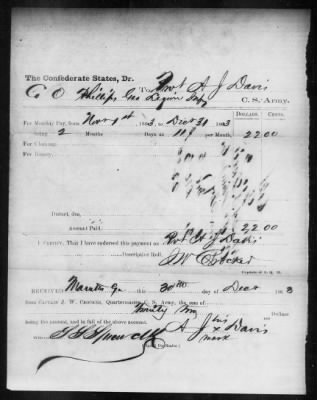 The Confederate States, Dr.
To Pvt A J Davis
Co O Phillips Geo Legion Inf C. S. Army.
DOLLARS. CENTS.
For Monthly Pay, from Nov 1st 1863, to Dec 31 1863
being 2 Months Days at 11$ per Month, 22 00
For Clothing,
For Bounty,
Deduct, due,
Amount Paid, 22.00
I CERTIFY, That I have endorsed this payment on Pvt A J Davis
Descriptive Roll. J W Crocker
RECEIVED, Marietta Ga this 30th day of Dec 1863
from CAPTAIN J. W. CROCKER, Quartermaster, C. S. Army, the sum of
Twenty two Dollars
being the amount, and in full of the above account.
his
A J x Davis
mark
WITNESS